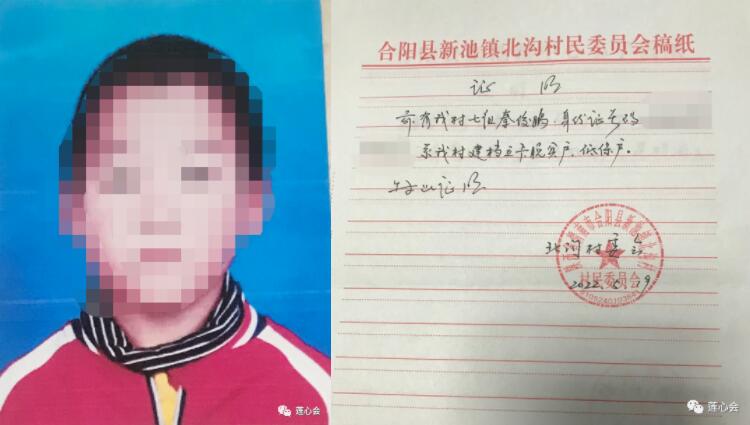 合阳县新池镇北沟村民委员会稿纸
证 明
兹有我村七组秦俊鹏，身份证号码
系我村建档立卡脱贫户、低保户。
特此证明
北沟村委会
村民委员会
2022.5.19
莲心会
莲心会